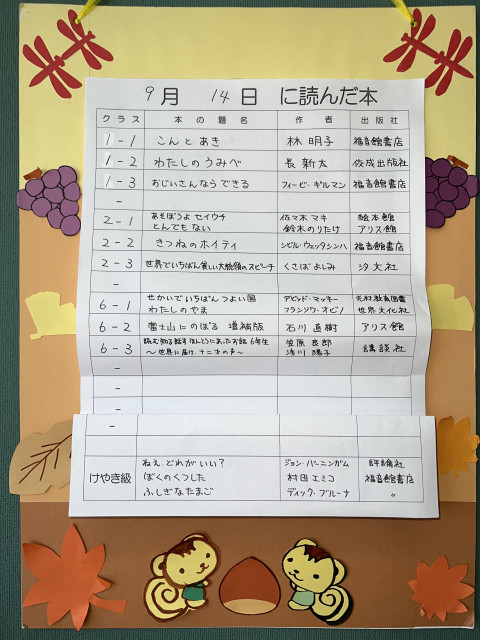 9月 14日 に読んだ本
クラス 本の題名 作者 出版社
1-1 こんとあき 林 明子 福音館書店
1-2 わたしのうみべ 長 新太 佼成出版社
1-3 おじいさんならできる フィービ・ギルマン 福音館書店
-
2-1 あそぼうよ セイウチ 佐々木 マキ 絵本館
とんでもない 鈴木のりたけ アリス館
2-2 きつねのホイティ シビル・ウェッタシンハ 福音館書店
2-3 世界でいちばん貧しい大統領のスピーチ くさばよしみ 汐文社
-
6-1 せかいでいちばんつよい国 デビッド・マッキー 光村教育図書
わたしのやま フランソワ・オビノ 世界文化社
6-2 富士山にのぼる 増補版 石川 直樹 アリス館
6-3 読む知る話す ほんとうにあったお話 6年生 笠原 良郎 講談社
〜世界に届け、十二才の声〜 浅川 陽子
-
-
-
-
けやき級 ねえ、どれがいい? ジョン・バーニンガム 評論社
ぼくのくつした 村田 エミコ 福音館書店
ふしぎなたまご ディック・ブルーナ 〃